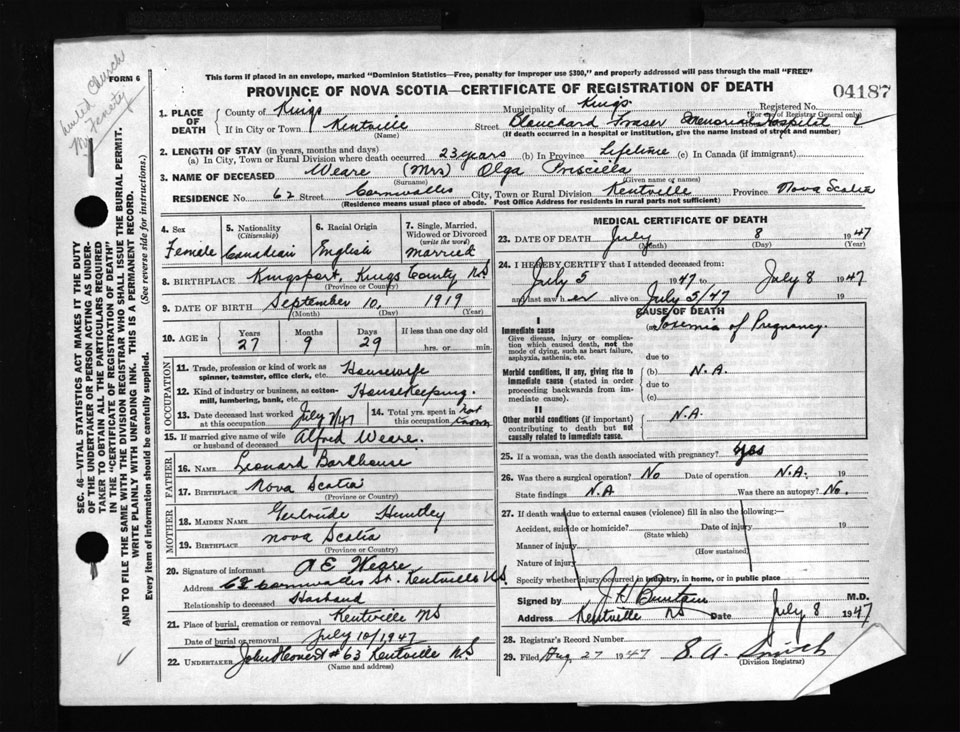 United Church
Mr Fenerty
FORM 6
SEC. 46—VITAL STATISTICS ACT MAKES IT THE DUTY
OF THE UNDERTAKER OR PERSON ACTING AS UNDER-
TAKER TO OBTAIN ALL THE PARTICULARS REQUIRED
IN THE "CERTIFICATE OF REGISTRATION OF DEATH"
AND TO FILE THE SAME WITH THE DIVISION REGISTRAR WHO SHALL ISSUE THE BURIAL PERMIT.
WRITE PLAINLY WITH UNFADING INK. THIS IS A PERMANENT RECORD.
Every item of information should be carefully supplied. (See reverse side for instructions.)
This form if placed in an envelope, marked "Dominion Statistics—Free, penalty for improper use $300," and properly addressed will pass through the mail "FREE"
PROVINCE OF NOVA SCOTIA—CERTIFICATE OF REGISTRATION OF DEATH
04187
1. PLACE OF DEATH County of Kings Municipality of Kings Registered No.
(For use of Registrar General only)
If in City or Town Kentville Street Blanchard Fraser Memorial Hospital
(Name) (If death occurred in a hospital or institution, give the name instead of street and number)
2. LENGTH OF STAY (in years, months and days)
(a) In City, Town or Rural Division where death occurred 23 years (b) In Province Lifetime (c) In Canada (if immigrant)
3. NAME OF DECEASED Weare (Mrs) Olga Priscilla
(Surname) (Given name or names)
RESIDENCE No. 62 Street Cornwallis City, Town or Rural Division Kentville Province Nova Scotia
(Residence means usual place of abode. Post Office Address for residents in rural parts not sufficient)
4. Sex 5. Nationality (Citizenship) 6. Racial Origin 7. Single, Married, Widowed or Divorced (write the word)
Female Canadian English Married
8. BIRTHPLACE Kingsport, Kings County NS
(Province or Country)
9. DATE OF BIRTH September 10, 1919
(Month) (Day) (Year)
10. AGE in Years Months Days If less than one day old
27 9 29 hrs. or min.
OCCUPATION
11. Trade, profession or kind of work as spinner, teamster, office clerk, etc. Housewife
12. Kind of industry or business, as cotton-mill, lumbering, bank, etc. Housekeeping.
13. Date deceased last worked at this occupation July 2/47 14. Total yrs. spent in this occupation not known
15. If married give name of wife or husband of deceased Alfred Weare.
FATHER
16. NAME Leonard Barkhouse
17. BIRTHPLACE Nova Scotia
(Province or Country)
MOTHER
18. MAIDEN NAME Gertrude Huntley
19. BIRTHPLACE Nova Scotia
(Province or Country)
20. Signature of informant A E Weare
Address 62 Cornwallis St. Kentville N.S.
Relationship to deceased Husband
21. Place of burial, cremation or removal Kentville NS
Date of burial or removal July 10/1947
22. UNDERTAKER # 63 Kentville N.S
(Name and address)
MEDICAL CERTIFICATE OF DEATH
23. DATE OF DEATH July 8 1947
(Month) (Day) (Year)
24. I HEREBY CERTIFY that I attended deceased from:
July 5 1947 to July 8 1947
and last saw her alive on July 5/47 19
CAUSE OF DEATH
I
Immediate cause (a) Toxemia of Pregnancy.
Give disease, injury or complication which caused death, not the mode of dying, such as heart failure, asphyxia, asthenia, etc.
due to
Morbid conditions, if any, giving rise to immediate cause (stated in order proceeding backwards from immediate cause). (b) N.A.
due to
(c)
II
Other morbid conditions (if important) contributing to death but not causally related to immediate cause. N.A.
25. If a woman, was the death associated with pregnancy? Yes
26. Was there a surgical operation? No Date of operation N.A. 19
State findings N.A Was there an autopsy? No.
27. If death was due to external causes (violence) fill in also the following:—
Accident, suicide or homicide? Date of injury 19
(State which)
Manner of injury
(How sustained)
Nature of injury
Specify whether injury occurred in industry, in home, or in public place
Signed by M.D.
Address Kentville NS Date July 8 1947
28. Registrar's Record Number
29. Filed Aug 27 1947 S. A. Smith
(Division Registrar)